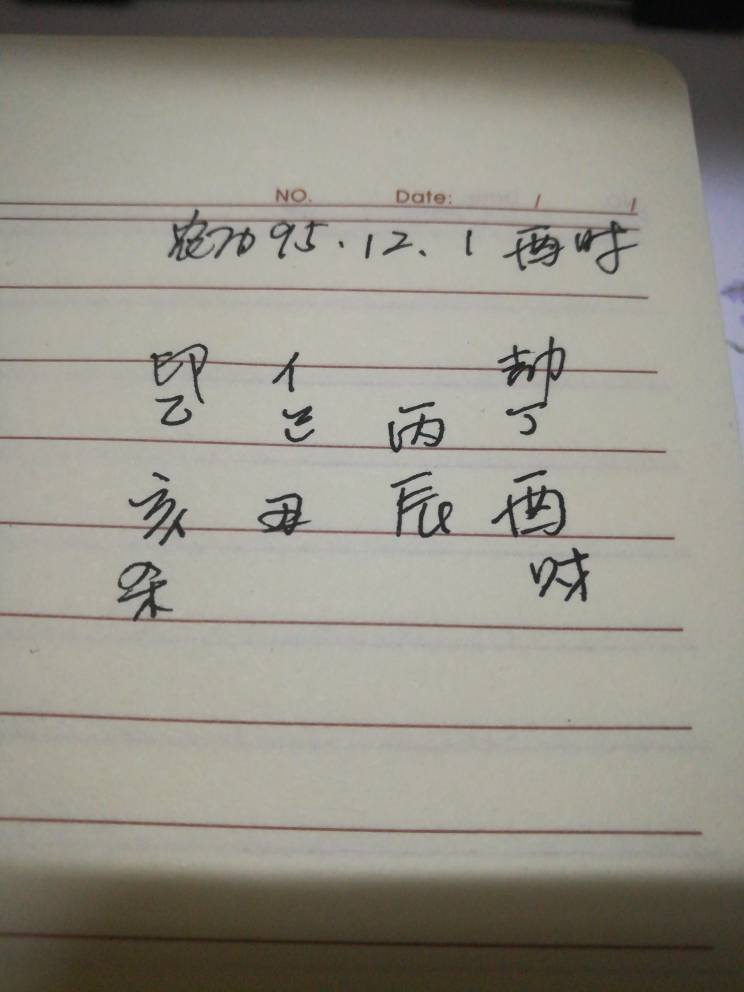 NO. Date: / /
农历95.12.1 酉时
印 亻 劫
乙 己 丙 丁
亥 丑 辰 酉
杀 财